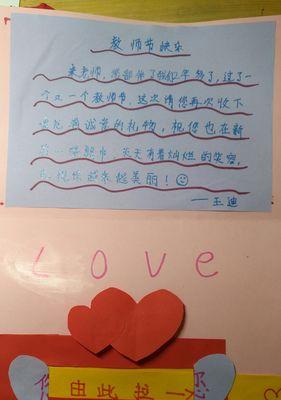 教师节快乐
老师，您都 了我们2年多了，过了一
个又一个教师节，这次请您再次收下
诚 的礼物，祝您也在新
的一学期中，天天有着灿烂的笑容，
越来越美丽！
——王迪
LOVE
由此 一 您